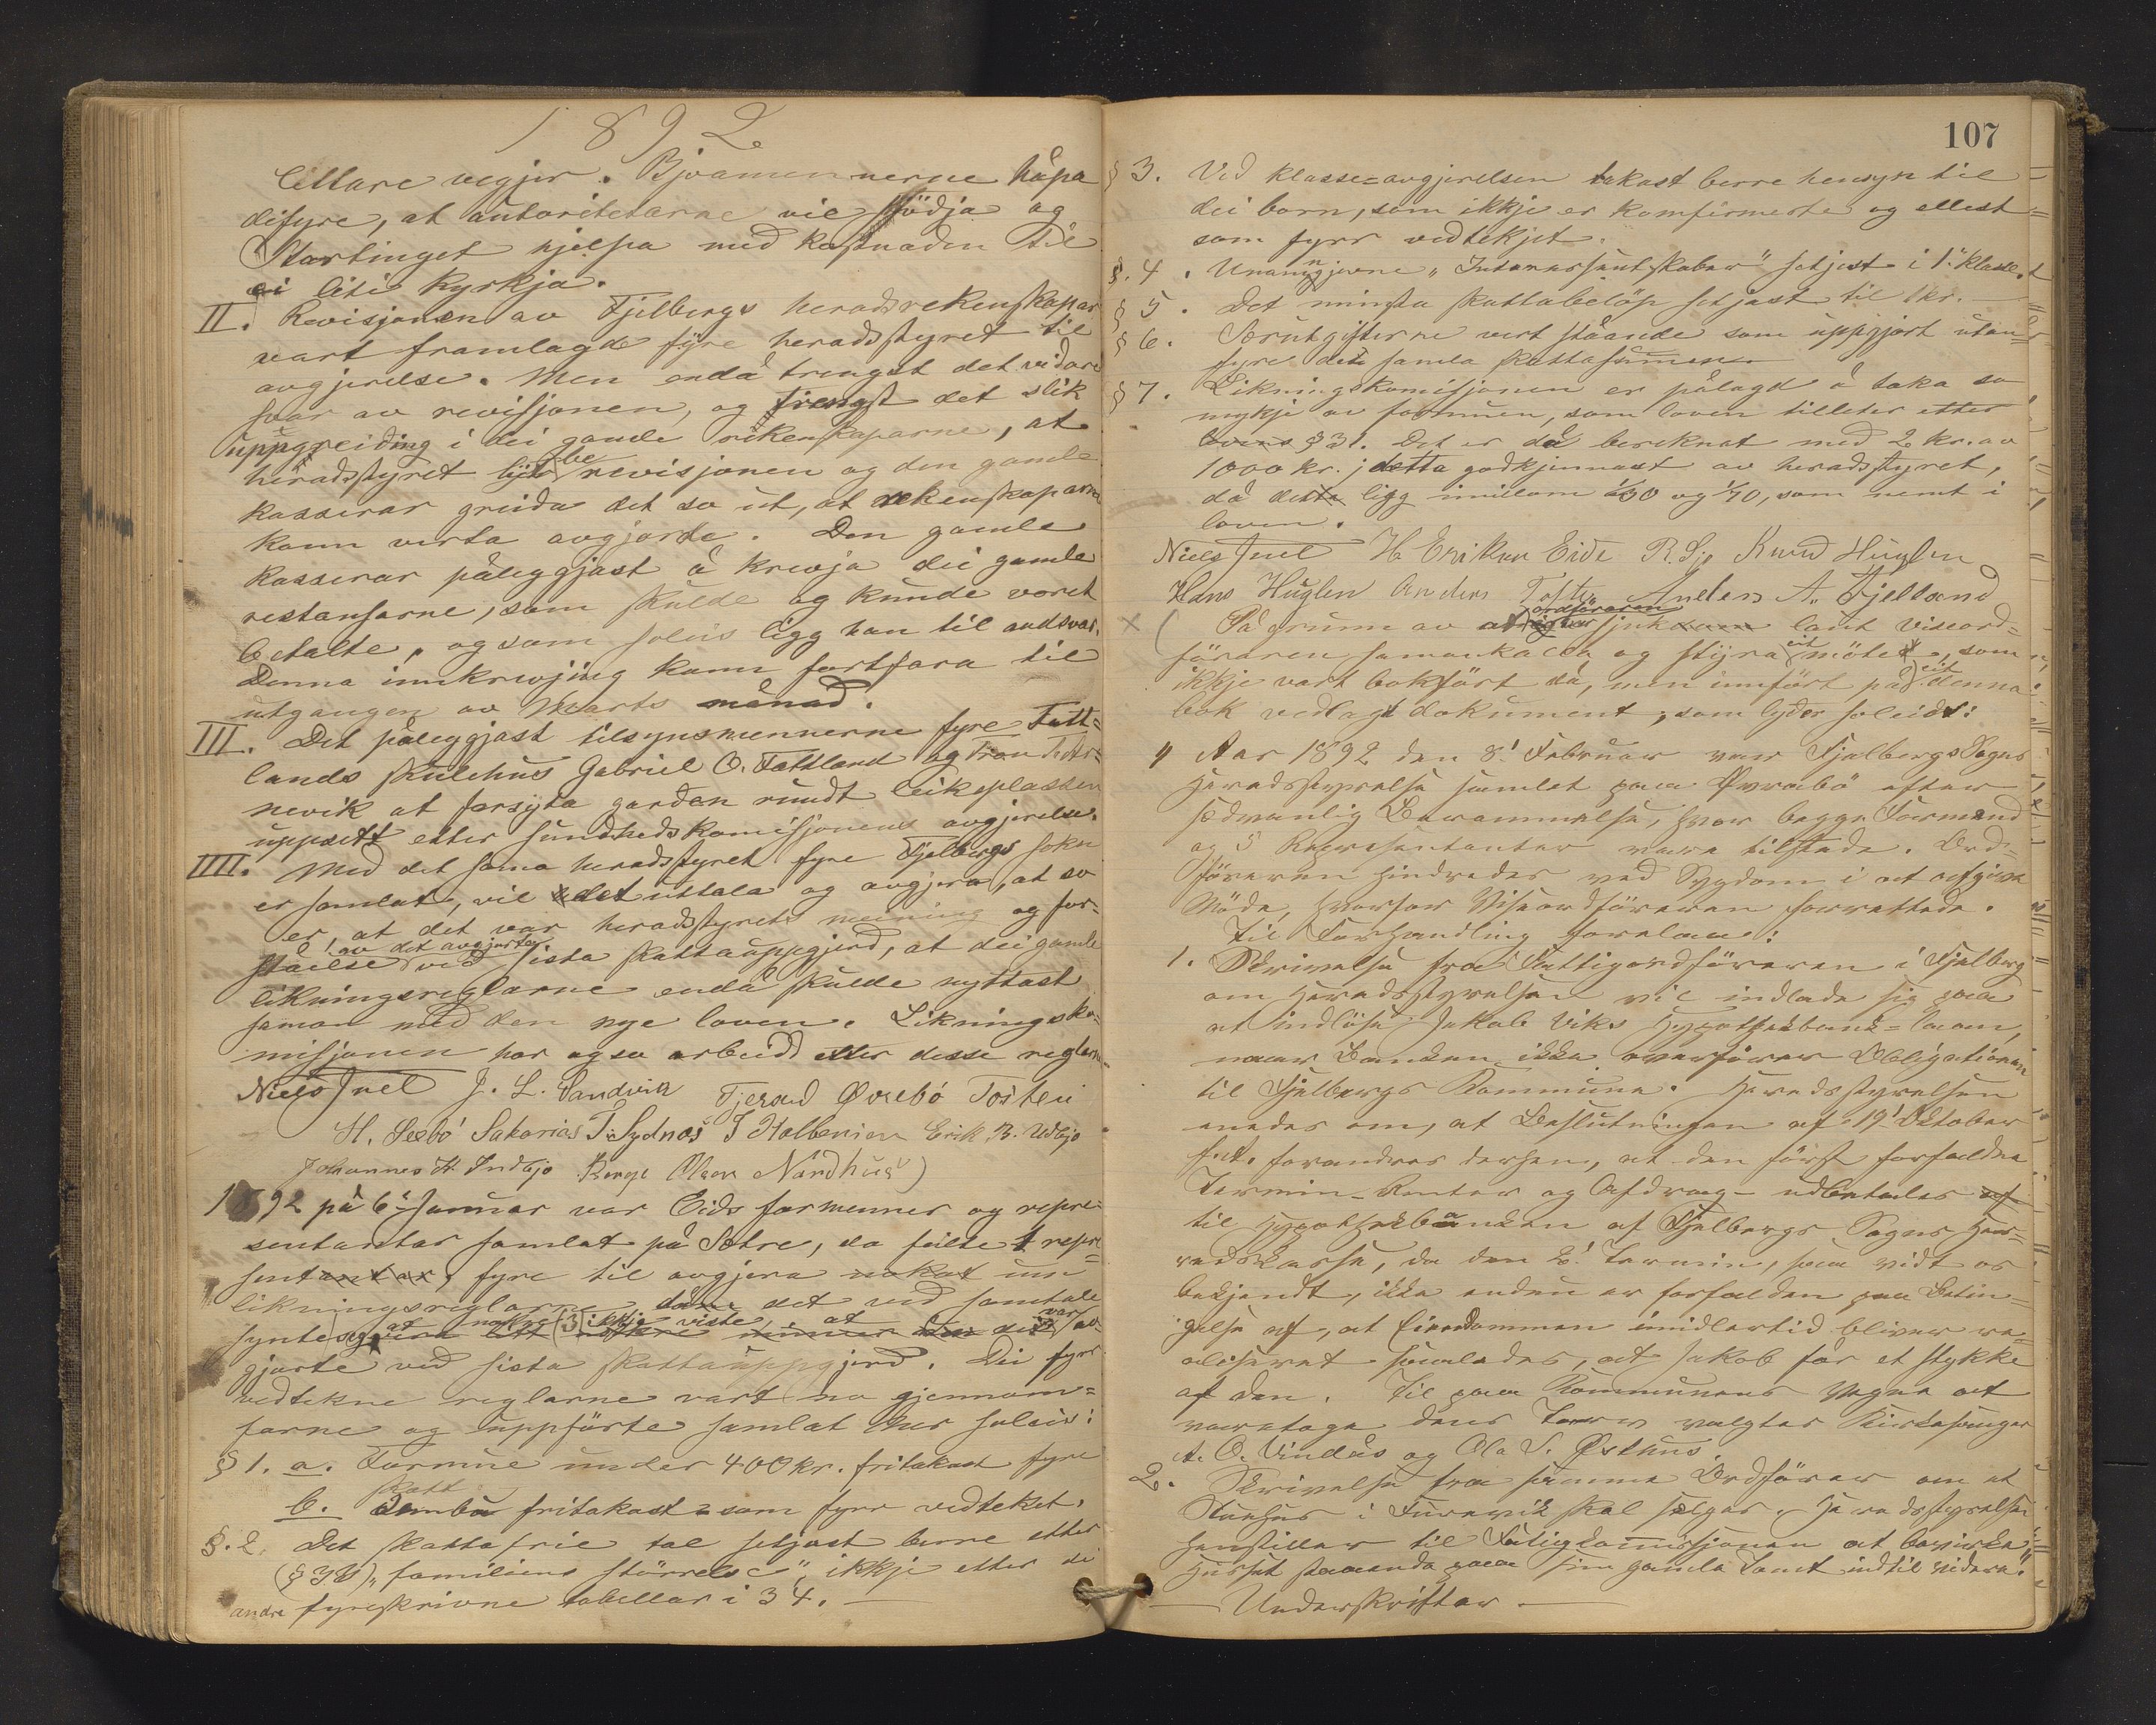 1892
lettare vegjer. Bjoamennerne håpa
difyre, at autoritetarne vil stödja og
Stortinget hjelpa med kostnaden til
ei liti kyrkja.
II. Revisjonen av Fjelbergs heradsrekenskapar
vart framlagde fyre heradsstyret til
avgjerelse. Men endå trengst det vidare
svar av revisjonen, og trengst det slik
uppgreiding i dei gamle rekenskaparne, at
heradsstyret lyt be revisjonen og den gamle
kasserar greida det so ut, at rekenskaparne
kann verta avgjorde. Den gamle
kasserar påleggjast å krevja dei gamle
restansarne, som skulde og kunde voret
betalte, og som soleis ligg han til andsvar.
Denna innkrevjing kann fortfara til
utgangen av Marts månad.
III. Det påleggjast tilsynsmennerne fyre Tatt-
lands skulehus Gabriel O. Tattland og Tron
nevik at forsyta garden rundt leikeplassen
uppsett etter sundhedskomisjonens avgjerelse.
IIII. Med det sama heradsstyret fyre Fjelbergs sokn
er samlat, vil det uttala og avgjera, at so
er, at det var heradsstyrets meining og for-
ståelse av det avgjorde ved sista skattauppgjerd, at dei gamle
likningsreglarne endå skulde nyttast
saman med den nye loven. Likningsko-
misjonen har ogso arbeidd etter desse reglarne
Niels Juel J. L. Sandvik Tjerand Øvrebö Tosten
H. Sæbö Sakarias T. Sydnes T Halbenien Erik R. Udbjo
Johannes H. Indbjo Børge Olson Nordhus)
1892 på 6' Januar var Eids formenner og repre-
sentantar samlat på Sætre, da feilte 1 repre-
sentantar, fyre til avgjera nokat um
likningsreglarne det ved samtale
syntes at nokre (3) ikkje viste at dei var av-
gjorte ved sista skattauppgjerd. Dei fyrr
vedtekne reglarne vart no gjennom-
farne og uppförte samlat her soleis:
§ 1. a. Formue under 400 kr. fritakast fyre
skatt
b. fritakast som fyrr vedteket.
§. 2. Det skattafrie tal setjast berre etter
(§ 38) "familiens störrelse", ikkje etter dei
andre fyreskrivne tabellar i 34.
107
§ 3. Ved klasse-avgjerelsen takast berre hensyn til
dei born, som ikkje er komfirmerte og ellest
som fyrr vedtekjet.
§. 4. Unanngjevne "Interessentskaber" setjest i 1. klasse.
§ 5. Det minsta skattabelöp setjast til 1 kr.
§ 6. Serutgifterne vert ståande som uppgjort utan-
fyre dei samla skattasummen.
§ 7. Likningskomisjonen er pålagd å taka so
mykje av formuen, som loven tilleter etter
lovens § 31. Det er då bereknat med 2 kr. av
1000 kr.; detta godkjennast av heradsstyret,
då desta ligg imillom 1/30 og 1/70, som nemt i
loven.
Niels Juel H Eriksen Eide R. Sj. Knud Huglen
Hans Huglen Anders Tofte Anders A. Fjelland
På grunn av at ordföraren sjuk laut viseord-
föraren samankalla og styra eit möte, som
ikkje vart bokfört då, men innfört på eit denna
bok vedlagt dokument, som lyder soleids:
" Aar 1892 den 8' Februar var Fjelbergs Sogns
Heradsstyrelse samlet paa Øvrabö efter
sædvanlig Berammelse, hvor begge Formænd
og 5 Repræsentanter vare tilstede. Ord-
föreren hindredes ved Sygdom i at afgive
Möde, hvorfor Viseordföreren forrettede.
Til Forhandling forelaa:
1. Skrivelse fra Fattigordföreren i Fjelberg
om Heradsstyrelsen vil indlade sig paa
at indlöse Jakob Viks Hypothekbank-laan,
naar Banken ikke overförer Obligationen
til Fjelbergs Kommune. Heradsstyrelsen
enedes om, at Beslutningen af 19' Oktober
f. A. forandres dersen, at den först forfaldne
Termin-Renter og Afdrag- udbetales af
til Hypothekbanken af Fjelbergs Sogns Her-
redskasse, da den 2' Termin, saa vidt os
bekjendt, ikke enden er forfalden paa Betin-
gelse af, at Eiendommen imidlertid bliver re-
aliseret saaledes, at Jakob får et stykke
af den. Til paa Kommunens Vegne at
varetage dens Tarv valgtes Kirkesanger
A. O. Vindås og Ola S. Østhus.
2. Skrivelse fra samme Ordförer om at
Stuehus i Furevik skal sælges. Heradsstyrelsen
henstiller til Fatigkommissjonen at bevirke
Huset staaende paa sin gamle Tomt indtil videre."
Underskrifter